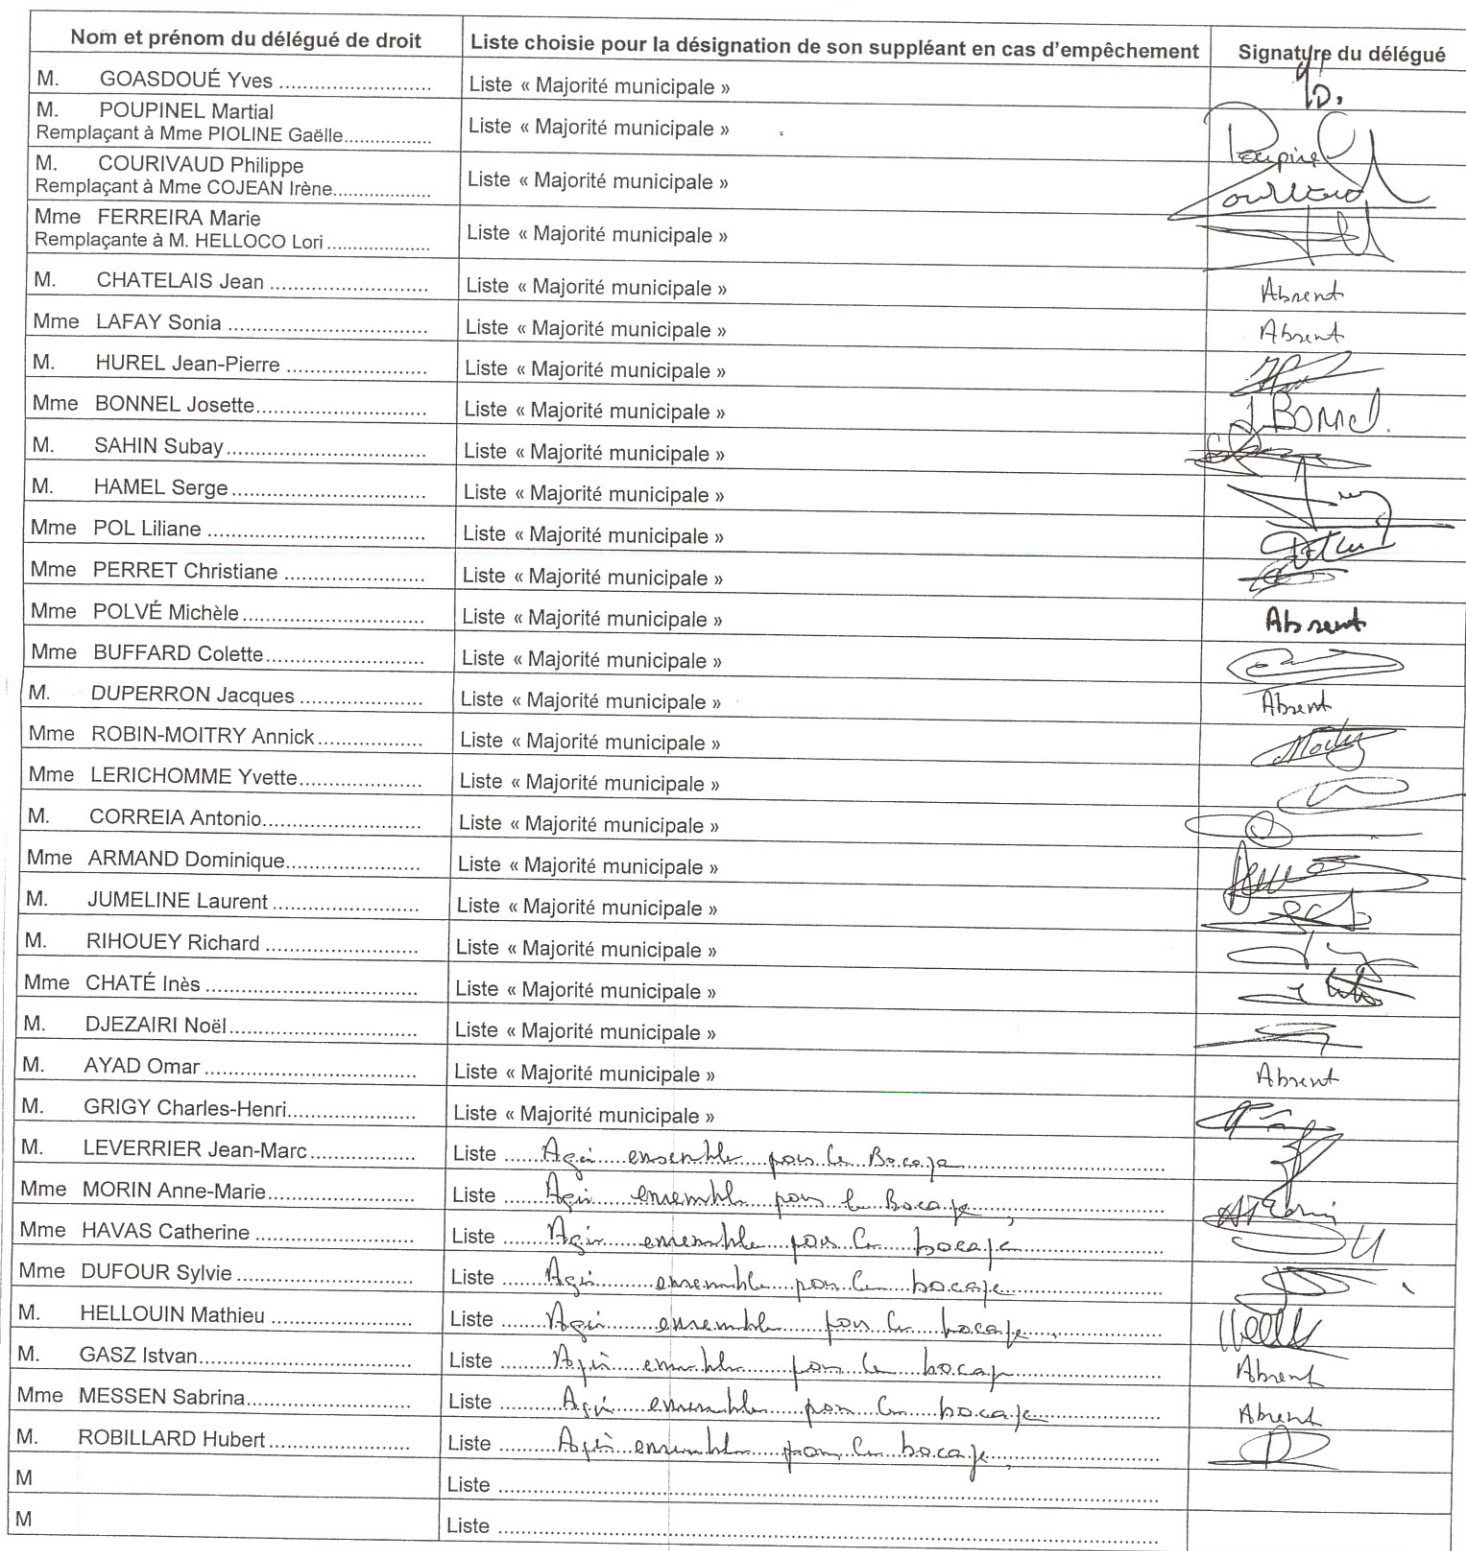 Nom et prénom du délégué de droit Liste choisie pour la désignation de son suppléant en cas d'empêchement Signature du délégué
M. GOASDOUÉ Yves .......................... Liste « Majorité municipale »
M. POUPINEL Martial
Remplaçant à Mme PIOLINE Gaëlle................ Liste « Majorité municipale » Poupinel
M. COURIVAUD Philippe
Remplaçant à Mme COJEAN Irène.................. Liste « Majorité municipale »
Mme FERREIRA Marie
Remplaçante à M. HELLOCO Lori ................... Liste « Majorité municipale »
M. CHATELAIS Jean ........................... Liste « Majorité municipale » Absent
Mme LAFAY Sonia .................................. Liste « Majorité municipale » Absent
M. HUREL Jean-Pierre ........................ Liste « Majorité municipale »
Mme BONNEL Josette............................. Liste « Majorité municipale » J. Bonnel.
M. SAHIN Subay.................................. Liste « Majorité municipale »
M. HAMEL Serge................................. Liste « Majorité municipale »
Mme POL Liliane ..................................... Liste « Majorité municipale »
Mme PERRET Christiane ........................ Liste « Majorité municipale »
Mme POLVÉ Michèle............................... Liste « Majorité municipale » Absent
Mme BUFFARD Colette........................... Liste « Majorité municipale »
M. DUPERRON Jacques ..................... Liste « Majorité municipale » Absent
Mme ROBIN-MOITRY Annick.................. Liste « Majorité municipale »
Mme LERICHOMME Yvette..................... Liste « Majorité municipale »
M. CORREIA Antonio........................... Liste « Majorité municipale »
Mme ARMAND Dominique....................... Liste « Majorité municipale »
M. JUMELINE Laurent ......................... Liste « Majorité municipale »
M. RIHOUEY Richard .......................... Liste « Majorité municipale »
Mme CHATÉ Inès .................................... Liste « Majorité municipale »
M. DJEZAIRI Noël................................ Liste « Majorité municipale »
M. AYAD Omar .................................... Liste « Majorité municipale » Absent
M. GRIGY Charles-Henri...................... Liste « Majorité municipale »
M. LEVERRIER Jean-Marc.................. Liste ...... Agir ensemble pour le Bocage
Mme MORIN Anne-Marie......................... Liste ...... Agir ensemble pour le Bocage
Mme HAVAS Catherine ............................ Liste ...... Agir ensemble pour le bocage
Mme DUFOUR Sylvie.............................. Liste ...... Agir ensemble pour le bocage
M. HELLOUIN Mathieu ........................ Liste ...... Agir ensemble pour le bocage
M. GASZ Istvan.................................... Liste ...... Agir ensemble pour le bocage Absent
Mme MESSEN Sabrina............................ Liste ...... Agir ensemble pour le bocage Absent
M. ROBILLARD Hubert........................ Liste ...... Agir ensemble pour le bocage
M Liste ..............................................................
M Liste ..............................................................